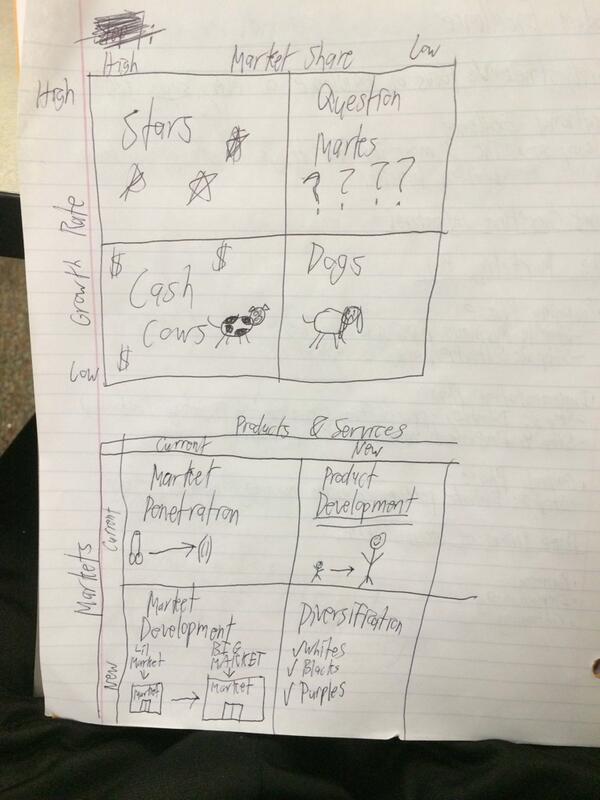 Market Share
High
Low
High
Growth Rate
Low
Stars
Question
Markes
? ? ? ?
$ $
Cash
Cows
$
Dogs
Products & Services
Current
New
Markets
Current
New
Market
Penetration
Product
Development
Market
Development
Lil
Market
BIG
MARKET
Market
Market
Diversiffication
✓Whites
✓ Blacks
✓ Purples